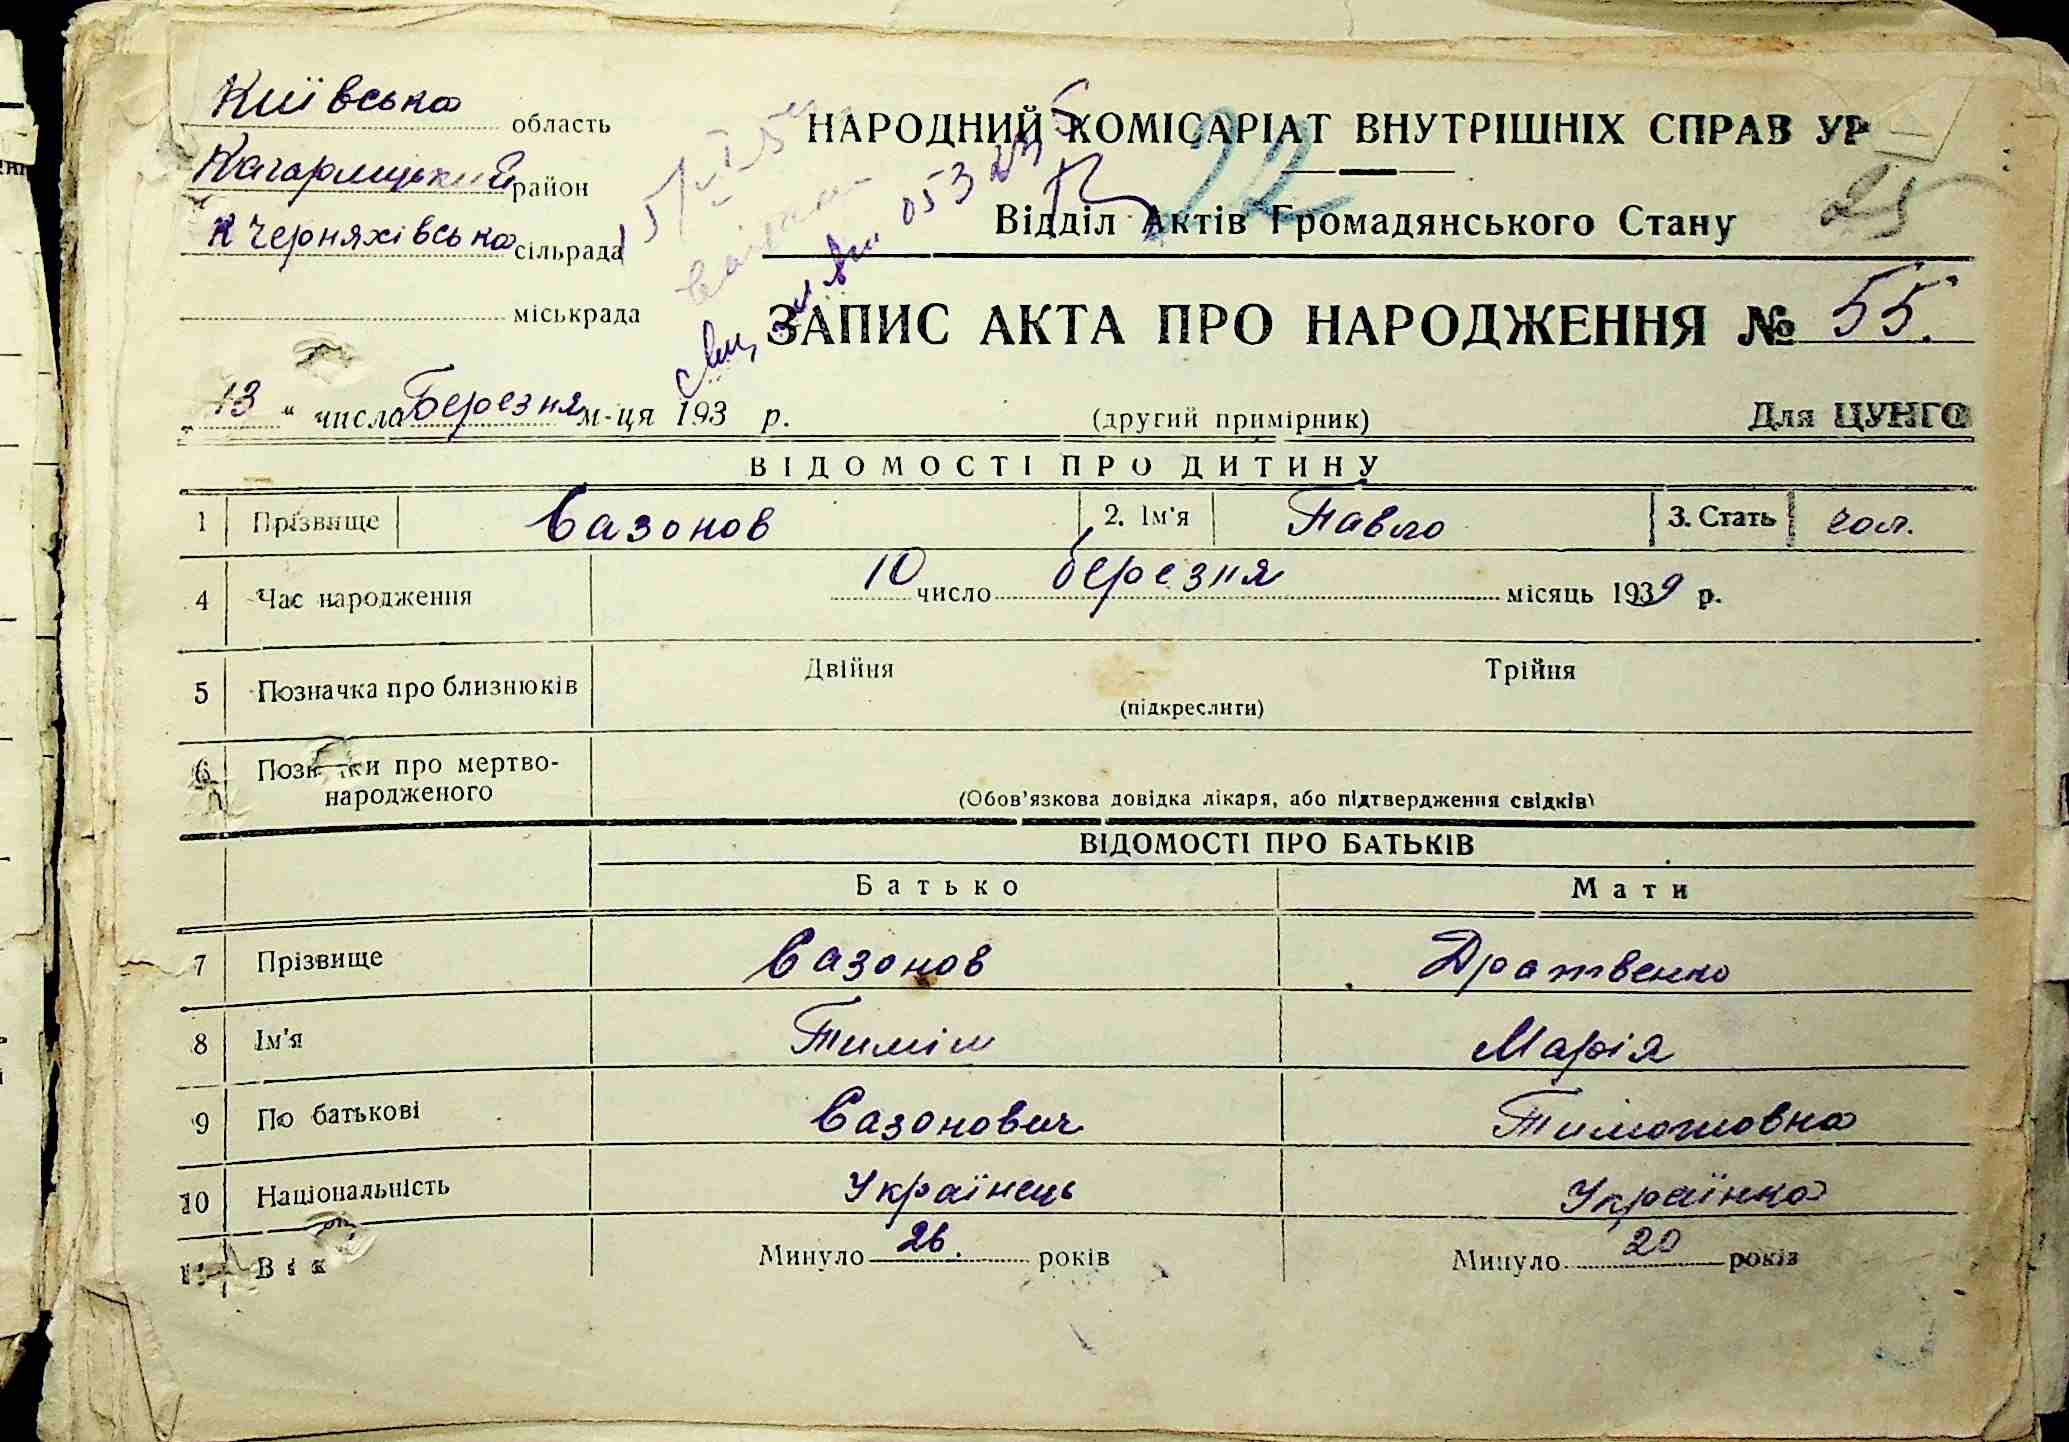 Київська область
Кагарлицький район
К Черняхівська сільрада
міськрада
НАРОДНИЙ КОМІСАРІАТ ВНУТРІШНІХ СПРАВ УР
22
25
Відділ Актів Громадянського Стану
ЗАПИС АКТА ПРО НАРОДЖЕННЯ № 55.
„13 “ числа Березня м-ця 193 р.
(другий примірник)
Для ЦУНГО
ВІДОМОСТІ ПРО ДИТИНУ
1 Прізвище Сазонов 2. Ім'я Павло 3. Стать чол.
4 Час народження 10 число березня місяць 1939 р.
5 Позначка про близнюків Двійня Трійня
(підкреслити)
6 Позначки про мертво-
народженого
(Обов'язкова довідка лікаря, або підтвердження свідків)
ВІДОМОСТІ ПРО БАТЬКІВ
Батько Мати
7 Прізвище Сазонов Дратвенко
8 Ім'я Тиміш Марія
9 По батькові Сазонович Тимошовна
10 Національність Українець Українка
11 Вік Минуло 26. років Минуло 20 років